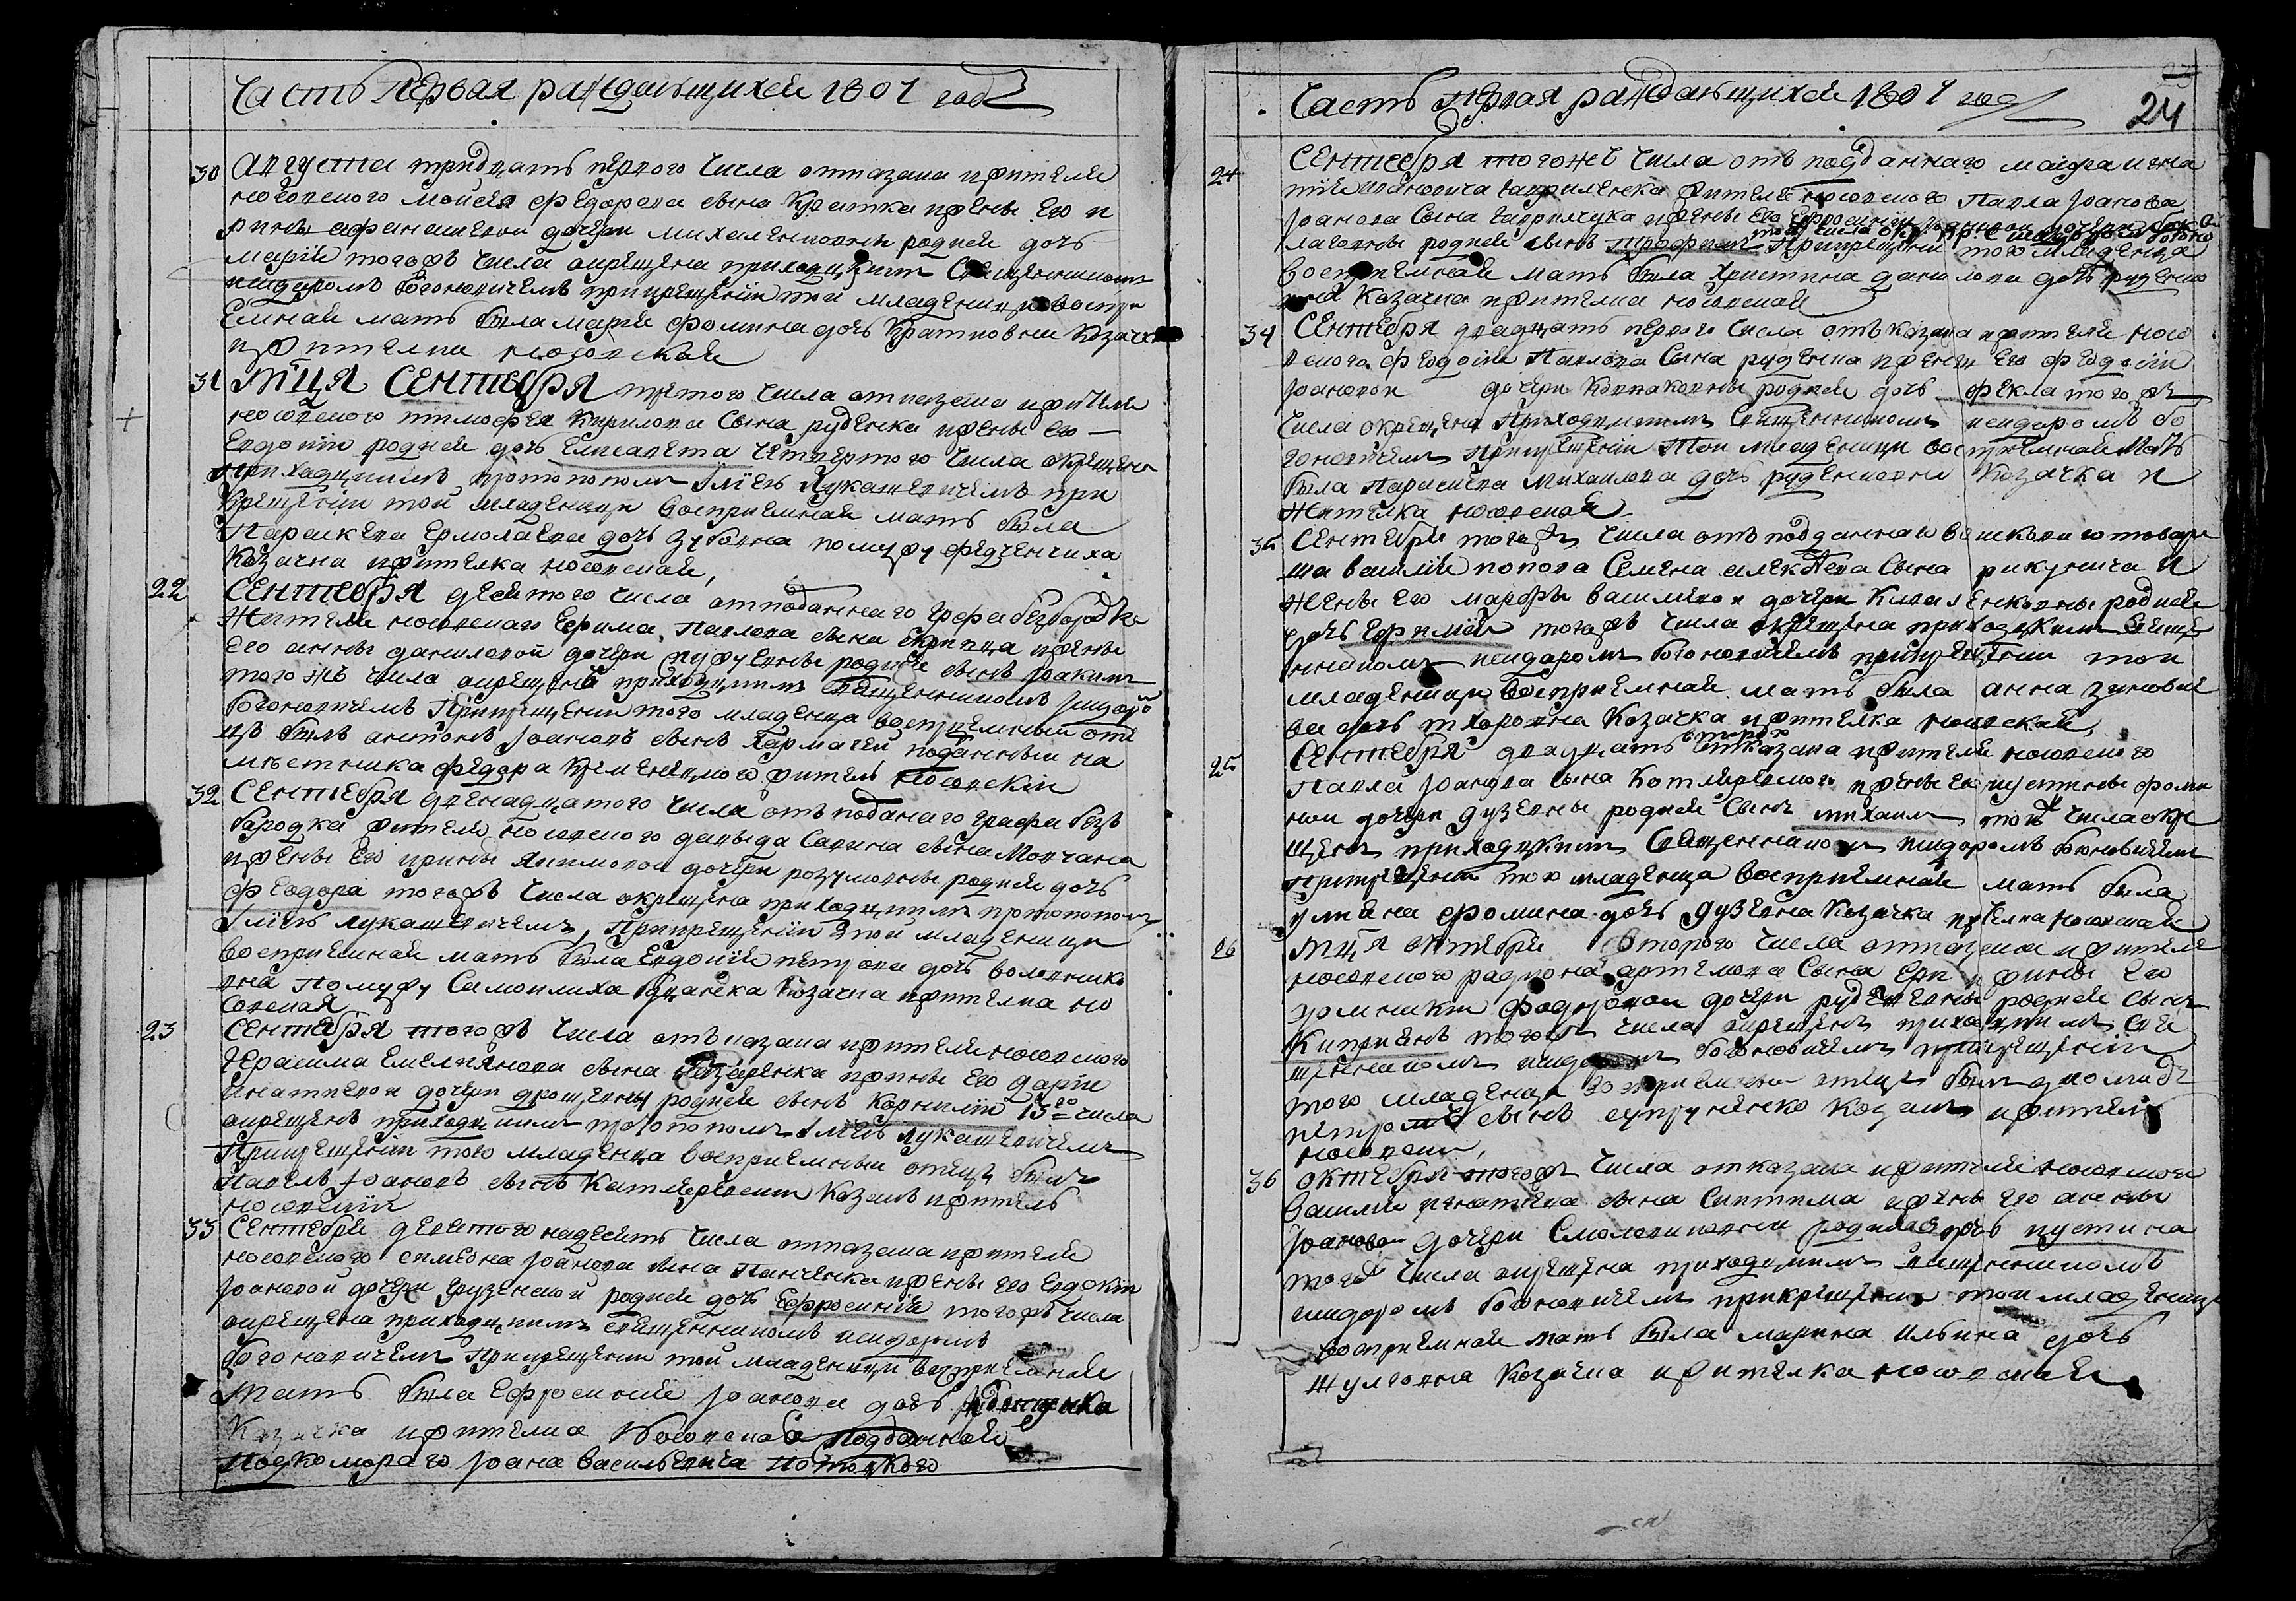 Часть первая раждающихся 1801 года
30 Августа тридцать первого числа отказака жителя
носовского Моисея Федорова сына Кратка и жены его и
рины афанасиевой дочери михаленковны родися дочь
мария тогожъ числа окрещена приходскимъ Священникомъ
исидоромъ богоновичемъ прикрещении той младеници воспри
емная мать была мария фомина дочь Кратковна козачка
и жителка носовская
31 М͠ЦЯ СЕНТЕБРЯ третого числа отказака жителя
носовского тимофея Кирилова Сына руденка и жены его
Евдокии родися дочь Елисавета четвертого числа окрещена
приходскимъ протопопомъ Илиею Лукашевичемъ при
крещении той младеници восприемная мать была
Параскева Ермолаева дочь зубовна помужу федченчиха
Козачка жителка носовская,
22 СЕНТЕБРЯ десятого числа отподаннаго графа безбородка
Жителя носовского Ефима Павлова сына скрипца и жены
его анны даниловой дочери родися сынъ Иоакимъ
того жъ числа окрещенъ приходскимъ священникомъ Исидоро
богоновичемъ Прикрещении того младенца восприемный оте
цъ былъ антонъ Иоановъ сынъ Хармачей подданный на
местника федора Кременецкого житель носовский
32 СЕНТЕБРЯ двенадцатого числа отъ поданаго графа безъ
бородка жителя носовского давыда Савина сына Мовчана
и жены его ирины якимовой дочери розумовны родися дочь
феодора тогожъ числа окрещена приходскимъ протопопомъ
Илиею лукашевичемъ, Прикрещении той младеници
восприемная мать была Евдокия петрова дочь воловико
вна Помужу Самоилиха козачка жителка но
совская
23 СЕНТЕБРЯ тогожъ числа отъ казака жителя носовского
Герасима Емелиянова сына Лазаренка и жены его дарии
Игнатиевой дочери дрощенны родися сынъ Корнилий 13го числа
окрещенъ приходскимъ протопопомъ Илиею лукашевичемъ
Прикрещении того младенца восприемный отецъ былъ
Павелъ Иоановъ сынъ Катляревский Козакъ житель
носовский
33 Сентебря девятогонадесять числа отказака жителя
носовского симеона Иоанова сына Панченка и жены его Евдокии
Иоановой дочери грузенской родися дочь Ефросиния тогожъ числа
окрещена приходскимъ священникомъ исидоромъ
богоновичемъ Прикрещении той младеници восприемная
мать была Ефросиния Иоанова дочь
Козачка жителка Носовская подданная
Подкоморого Иоана Васильевича
Часть первая раждающихся 1801 года
24
24 СЕНТЕБРЯ тогожъ числа отъ подданнаго маиора игна
тия ивановича гаврилевска жителя носовского Павла Иоанова
Иоанова Сына гаврилчука и жены его Ефросинии
родися сынъ трофимъ Прикрещении того младенца
восприемная мать была христина данилова дочь руденко
вна Козачка жителка носовская
34 СЕНТЕБРЯ двадцать первого числа отъ козака жителя носо
вского феодосия Павлова Сына руденка и жены его феодосии
Иоановой дочери Колпаковны родися дочь фекла тогожъ
числа окрещена Приходскимъ Священникомъ исидоромъ бо
гоновичемъ прикрещении той младеници восприемная мать
была Параскева Михаилова дочь руденковна Козачка и
жителка носовская
35 СЕНТЕБРЯ тогожъ числа отъ подданнаго воискового товари
ша василия попова Семена алексеева сына рикунича и
жены его марфы василевой дочери родися
дочь Ефимия тогожъ числа окрещена приходскимъ свяще
нникомъ исидоромъ богоновичемъ прикрещении той
младеници восприемная мать была анна зиновие
ва дочь тхоровна Козачка жителка носовская,
25 СЕНТЕБРЯ двадцать второ отказака жителя носовского
Павла Иоанова сына Котляревского и жены его иустины фоми
ной дочери дузевны родися сынъ михаилъ того числа окре
щенъ приходскимъ Священникомъ исидоромъ богоновичемъ
Прикрещении того младенца восприемная мать была
улияна фомина дочь дузевна Козачка жителка носовская
26 М͠ЦЯ октебря второго числа отказака жителя
носовского радиона артемова Сына Ерп и жены его
домники федоровой дочери руденковны родися сынъ
Киприянъ тогожъ числа окрещенъ приходскимъ свя
щенникомъ исидоромъ богоновичемъ прикрещении
того младенца восприемный отецъ былъ диомидъ
петровъ сынъ супруненко козакъ житель
носовский,
36 октебря тогожъ числа отказака жителя носовского
василия игнатиева сына Скитима и жены его анны
Иоановой дочери Смоловиковны родилася дочь иустина
того числа окрещена приходскимъ священникомъ
исидоромъ богоновичемъ прикрещении той младеници
восприемная мать была марина ильина дочь
шулговна Козачка жителка носовская